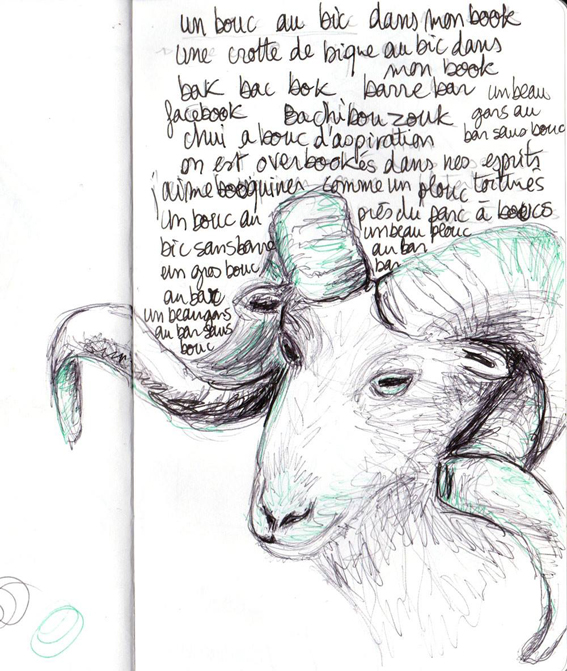 un bouc au bic dans mon book
une crotte de bique au bic dans
mon book
bak bac bok barre bar un beau
facebook Bachibouzouk gars au
chui a bouc d'aspiration bar sans bouc
on est overbookés dans nos esprits
j'aime bouquiner comme un plouc torturés
un bouc au près du parc à boucs
bic sans barre un beau plouc
un gros bouc au bar
au bar bar
un beau gars
au bar sans
bouc